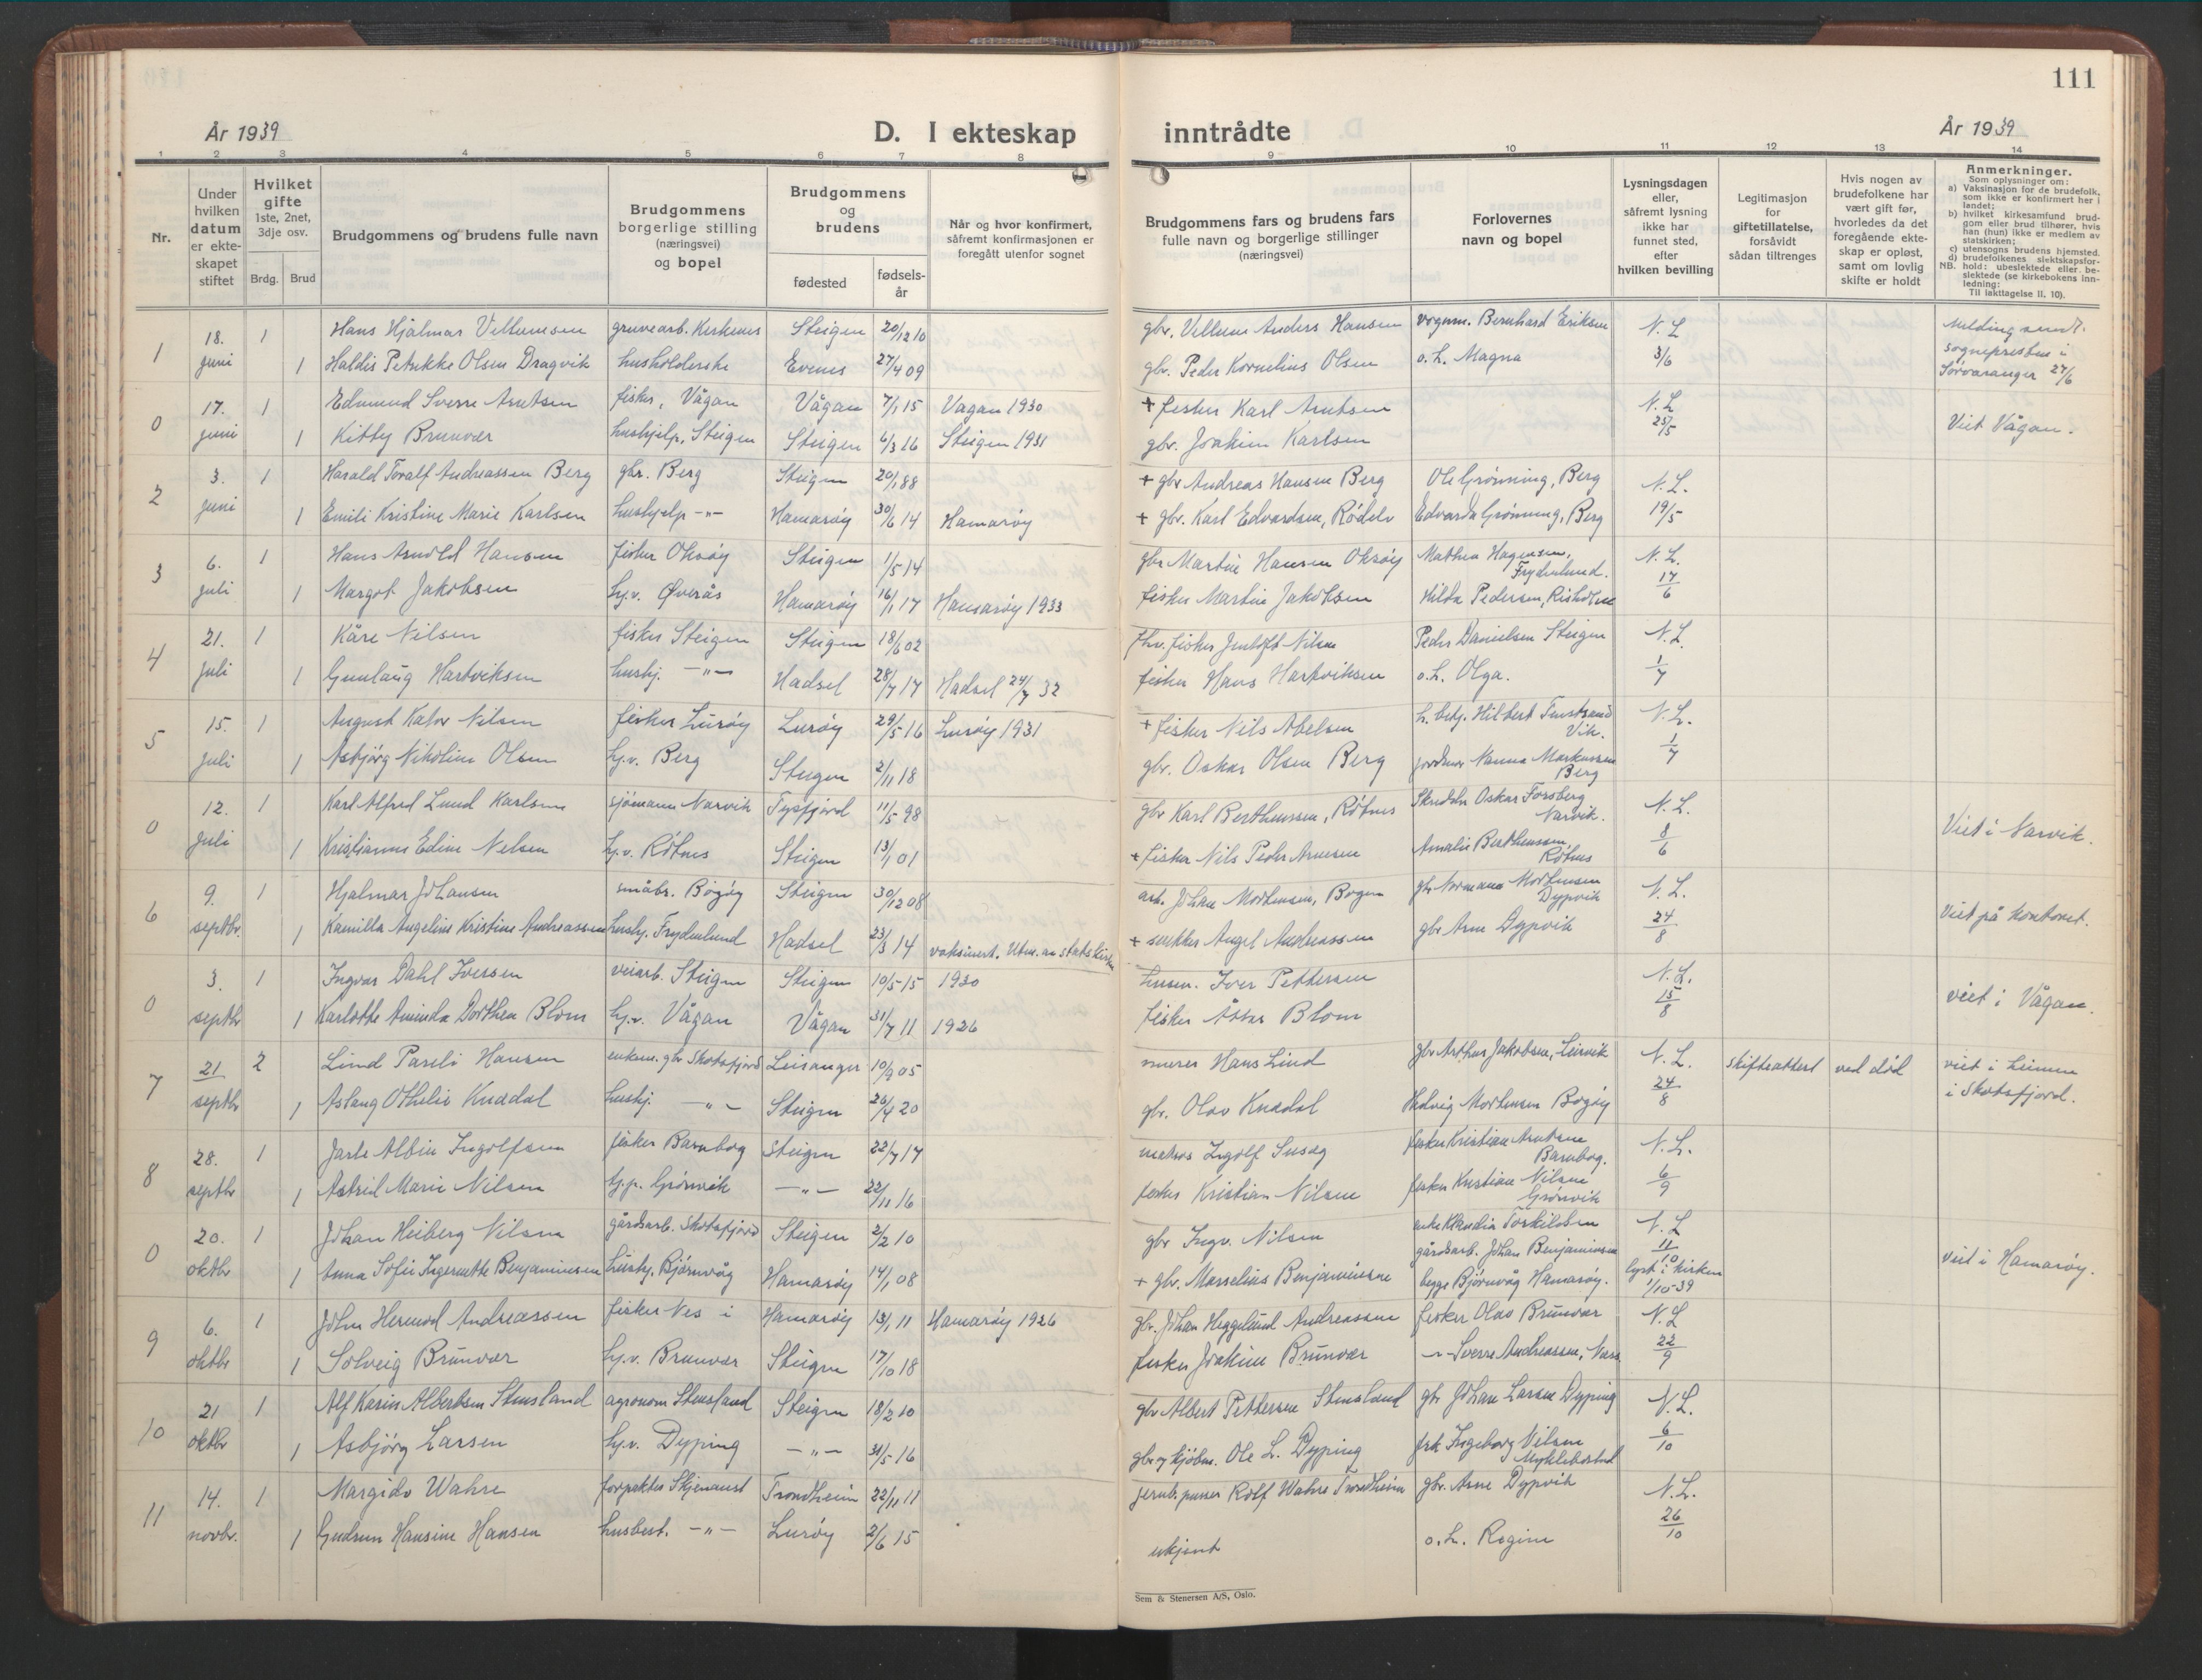 111
År 1939
D. I ekteskap inntrådte
År 1939
1 2 3 4 5 6 7 8 9 10 11 12 13 14
Nr.
Under hvilken datum er ekteskapet stiftet
Hvilket gifte 1ste, 2net, 3dje osv.
Brdg. Brud
Brudgommens og brudens fulle navn
Brudgommens borgerlige stilling (næringsvei) og bopel
Brudgommens og brudens
fødested
fødselsår
Når og hvor konfirmert, såfremt konfirmasjonen er foregått utenfor sognet
Brudgommens fars og brudens fars fulle navn og borgerlige stillinger (næringsvei)
Forlovernes navn og bopel
Lysningsdagen eller, såfremt lysning ikke har funnet sted, efter hvilken bevilling
Legitimasjon for giftetillatelse, forsåvidt sådan tiltrenges
Hvis nogen av brudefolkene har vært gift før, hvorledes da det foregående ekteskap er opløst, samt om lovlig skifte er holdt
Anmerkninger.
Som oplysninger om:
a) Vaksinasjon for de brudefolk, som ikke er konfirmert her i landet;
b) hvilket kirkesamfund brudgom eller brud tilhører, hvis han (hun) ikke er medlem av statskirken;
c) utensogns brudens hjemsted.
d) brudefolkenes slektskapsforhold: ubeslektede eller beslektede (se kirkebokens innledning:
NB. Til iakttagelse II. 10).
1 18. juni 1 Hans Hjalmar Vellumsen gruvearb. Kirkenes Steigen 20/12 10 gbr. Vellum Anders Hansen vognm. Bernhard Eriksen N. L. 3/6 Melding sendt. sognepresten i Sørvaranger 27/6
1 Haldis Petrikke Olsen Dragvik husholderske Evenes 27/4 09 gbr. Peder Kornelius Olsen o. h. Magna
0 17. juni 1 Edmund Sverre Arntsen fisker, Vågan Vågan 7/1 15 Vagan 1930 + fisker Karl Arntsen N. L. 23/5 Viet Vågan.
1 Kitty Brunvær hushjelp, Steigen Steigen 6/3 16 Steigen 1931 gbr. Joakim Karlsen
2 3. juni 1 Harald Toralf Andreassen Berg gbr. Berg Steigen 20/1 88 + gbr Andreas Hansen Berg Ole Grönning, Berg N. L. 19/5
1 Emili Kristine Marie Karlsen hushjelp -"- Hamarøy 30/6 14 Hamarøy + gbr. Karl Edvardsen, Rödelv Edvarda Grönning, Berg
3 6. juli 1 Hans Arnold Hansen fisker Oksøy Steigen 1/5 14 gbr Martin Hansen Oksøy Mathea Hagensen, Frydenlund. N. L. 17/6
1 Margot Jakobsen hj.v. Øverås Hamarøy 16/1 17 Hamarøy 1933 fisker Martin Jakobsen Hilda Pedersen, Risholme
4 21. juli 1 Kåre Nilsen fisker Steigen Steigen 18/6 02 fhv. fisker Jentoft Nilsen Peder Danielsen Steigen N. L. 1/7
1 Gunlaug Hartviksen hushj. -"- Hadsel 28/7 17 Hadsel 24/7 32 fisker Hans Hartviksen o. h. Olga.
5 15. juli 1 August Kator Nilsen fisker Lurøy Lurøy 29/5 16 Lurøy 1931 + fisker Nils Abelsen h. betj. Hilbert Vik. N. L. 1/7
1 Asbjørg Nikoline Olsen hj.v. Berg Steigen 2/11 18 gbr. Oskar Olsen Berg jordmor Nanna Markussen Berg
0 12. juli 1 Karl Alfred Lund Karlsen sjømann Narvik Tysfjord 11/5 98 gbr Karl Berthenssen, Rötnes Skredder Oskar Forsberg Narvik. N. L. 8/6 Viet i Narvik.
1 Kristianne Edine Nelsen hj.v. Rötnes Steigen 13/1 01 + fisker Nils Peder Arnesen Amalie Berthenssen Rötnes
6 9. septbr. 1 Hjalmar Johansen småbr. Bogøy Steigen 30/12 08 arb. Johan Mortensen, Bogen gbr Normann Mortensen Dypvik N. L. 24/8 Viet på kontoret.
1 Kamilla Angeline Kristine Andreassen hushj. Frydenlund Hadsel 23/3 14 vaksinert. Utm. av statskirken + snekker Angel Andreassen gbr Arne Dypvik
0 3. septbr 1 Ingvar Dahl Iversen veiarb. Steigen Steigen 10/5-15 1930 husm. Iver Pettersen N. L. 15/8 viet i Vågan.
1 Karlotte Aminda Dorthea Blom hj.v. Vågan Vågan 31/7 11 1926 fisker Blom
7 21 septbr 2 Lind Pareli Hansen enkem. gbr Skotsfjord Leisanger 10/9 05 murer Hans Lind gbr Arthur Jakobsen, Leirvik N. L. 24/8 skifteattest ved död viet i heimen i Skotsfjord.
1 Aslaug Othelie Knædal hushj. -"- Steigen 20/4 20 gbr. Olav Knædal Hedvig Mortensen Bogøy
8 28. septbr 1 Jarle Albin Ingolfsen fisker Barnbog Steigen 22/7 17 matros Ingolf fisker Kristian Arntsen Barnbog. N. L. 6/9
1 Astrid Marie Nilsen hj.p. Grönvik -"- 22/11 16 fisker Kristian Nilsen fisker Kristian Nilsen Grönvik
0 20. oktbr 1 Johan Heiberg Nilsen gårdsarb. Skotsfjord Steigen 2/2 10 gbr Ingv. Nilsen enke Klaudia Torkildsen N. L. 11/10 lyst i kirken 1/10-39 viet i Hamarøy.
1 Anna Sofie Ingernette Benjaminsen hushj. Bjørnvåg Hamarøy 14/1 08 + gbr. Masselius Benjaminsen gårdsarb. Johan Benjaminsen begge Bjørnvåg Hamarøy.
9 6. oktbr 1 John Hermod Andreassen fisker Nes i Hamarøy 13/1 11 Hamarøy 1926 gbr. Johan Heggelund Andreassen fisker Olav Brunvær N. L. 22/9
1 Solveig Brunvær hj.v. Brunvær Steigen 17/10 18 fisker Joakim Brunvær -"- Sverre Andreassen,
10 21 oktbr 1 Alf Karin Albertsen Stensland agronom Stensland Steigen 18/2 10 gbr Albert Pettersen Stensland gbr Johan Larsen Dyping N. L. 6/10
1 Asbjørg Larsen hj.v. Dyping -"- 31/5 16 gbr og kjöbm. Ole L. Dyping frk Ingeborg Nilsen Myklebostad
11 14. novbr. 1 Margido Wahre forpakter Skjenaust Trondheim 22/11 11 jernb. pusser Rolf Wahre Trondheim gbr. Arne Dypvik N. L. 26/10
1 Gudrun Hansine Hansen husbest. -"- Lurøy 2/6 15 ukjent o. h. Regine
Sem & Stenersen A/S, Oslo.